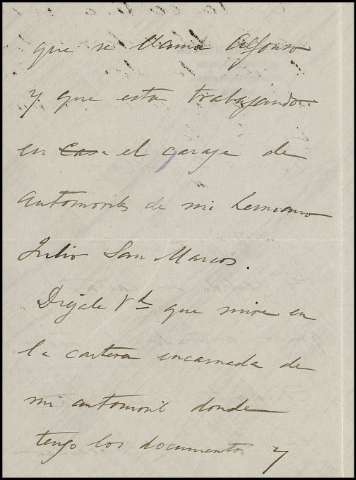 que se llama Alfonso
y que esta trabajando
en casa el garaje de
automovils de mi hermano
Julio San Marcos.
Digale Vd que mire en
la cartera encarnada de
mi automovil donde
tengo los documentos y